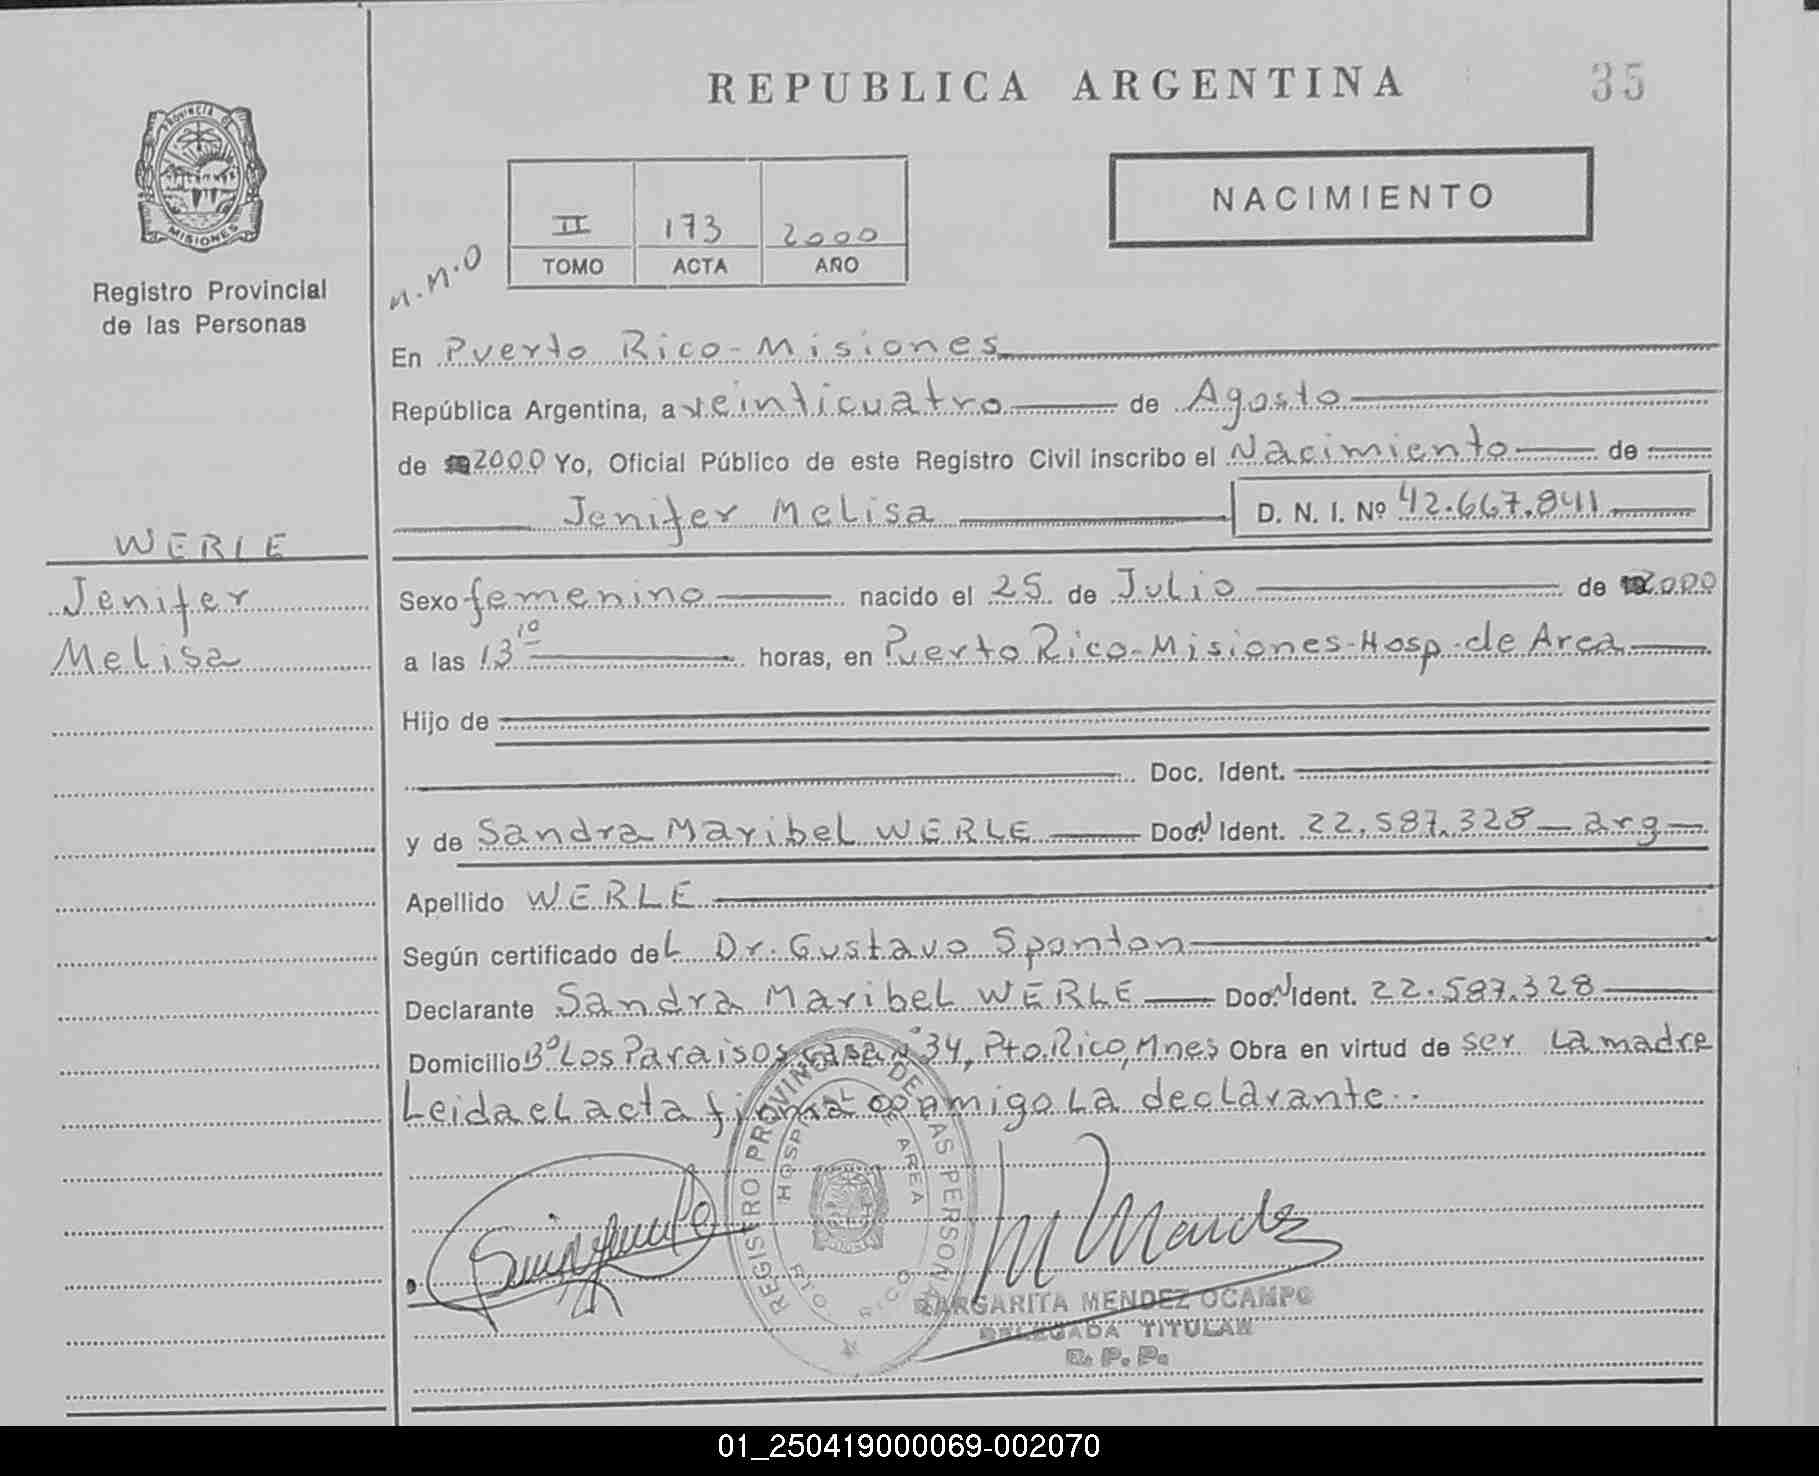 REPUBLICA ARGENTINA
35
PROVINCIA DE
MISIONES
Registro Provincial
de las Personas
II 173 2000
TOMO ACTA AÑO
NACIMIENTO
n.n.o
En Puerto Rico - Misiones
República Argentina, a veinticuatro de Agosto
de 2000 Yo, Oficial Público de este Registro Civil inscribo el Nacimiento de
Jenifer Melisa D. N. I. Nº 42.667.841
WERLE
Jenifer
Melisa
Sexo femenino nacido el 25 de Julio de 2000
a las 13 10 horas, en Puerto Rico - Misiones - Hosp. de Area
Hijo de
Doc. Ident.
y de Sandra Maribel WERLE Doc. Ident. 22.587.328 - arg -
Apellido WERLE
Según certificado del Dr. Gustavo Sponton
Declarante Sandra Maribel WERLE Doc. Ident. 22.587.328
Domicilio Bº Los Paraisos casa nº 34, Pto. Rico, Mnes Obra en virtud de ser la madre
Leida el acta firma conmigo la declarante..
REGISTRO PROVINCIAL DE LAS PERSONAS
HOSPITAL DE AREA
RICO
MARGARITA MENDEZ OCAMPO
DELEGADA TITULAR
R. P. P.
01_250419000069-002070